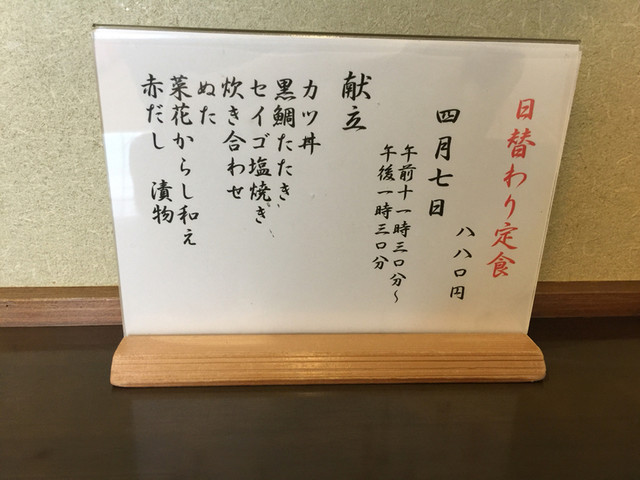 日替わり定食
八八〇円
四月七日
午前十一時三〇分～
午後一時三〇分
献立
カツ丼
黒鯛たたき
セイゴ塩焼き
炊き合わせ
ぬた
菜花からし和え
赤だし　漬物